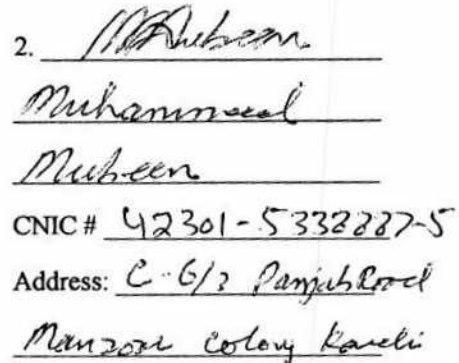 2. MMubeen
Muhammad
Mubeen
CNIC # 42301-5332227-5
Address: C-6/2 Panjab Road
Manzoor Colony Karchi